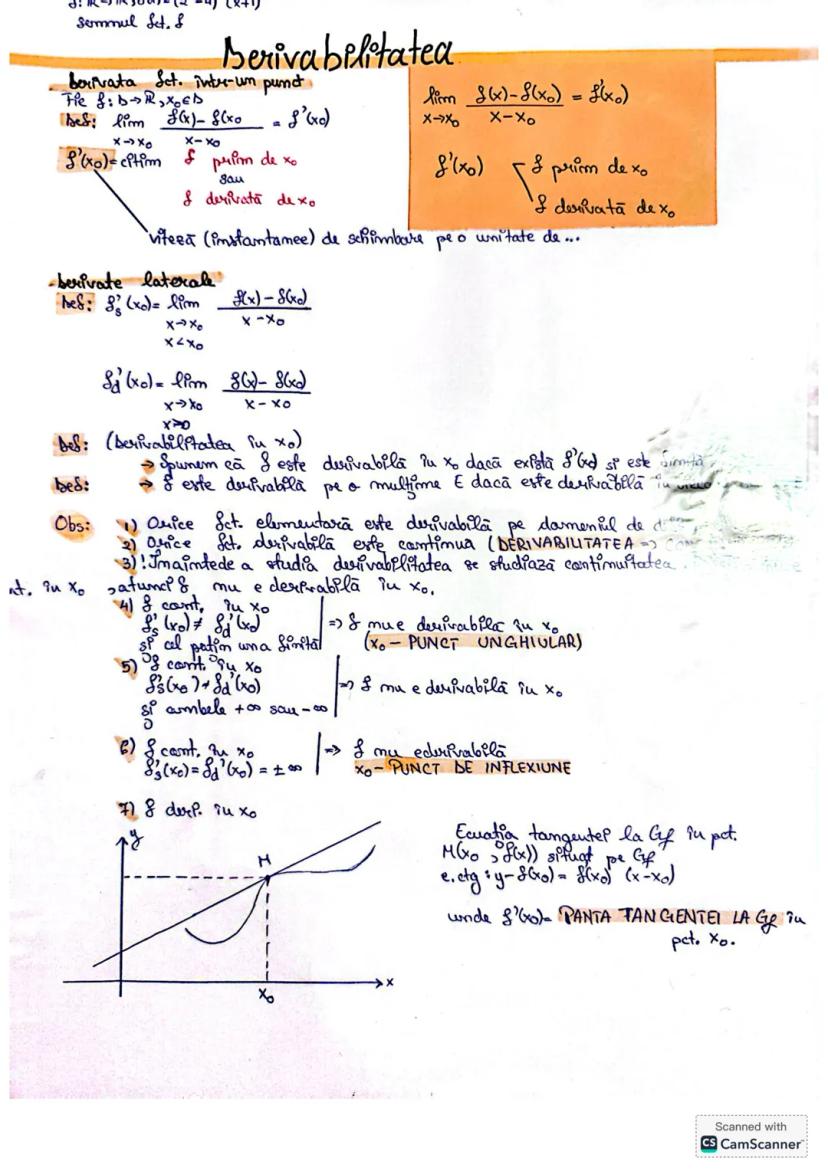 Semnul fct. f
Derivabilitatea
Derivata fct. într-um punct
Fie f: D→R, x₀∈D
Def: lim f(x)-f(x₀ / x-x₀ = f'(x₀)
x→x₀
f'(x₀)= citim f prim de x₀
sau
f derivată de x₀
lim f(x)-f(x₀) / x-x₀ = f'(x₀)
x→x₀
f'(x₀) f prim de x₀
f derivată de x₀
viteză (instantanee) de schimbare pe o unitate de...
Derivate laterale
Def: f's(x₀)= lim f(x)-f(x₀) / x-x₀
x→x₀
x<x₀
fd'(x₀)= lim f(x)-f(x₀) / x-x₀
x→x₀
Def: (Derivabilitatea în x₀)
→ Spunem că f este derivabilă în x₀ dacă există f'(x₀) și este finită
Def: → f este derivabilă pe o mulțime E dacă este derivabilă în
Obs: 1) Orice fct. elementară este derivabilă pe domeniul de
2) Orice fct. derivabilă este continua (DERIVABILITATEA =>
3) ! Înaintede a studia derivabilitatea se studiază continuitatea.
nt. în x₀, atunci f nu e derivabilă în x₀.
4) f cont. în x₀
f's(x₀) ≠ fd'(x₀) => f nu e derivabilă în x₀
și cel puțin una finită (x₀ - PUNCT UNGHIULAR)
5) f cont. în x₀
f's(x₀) ≠ fd'(x₀) => f nu e derivabilă în x₀
și ambele +∞ sau -∞
6) f cont. în x₀ => f nu ederivabilă
f's(x₀) = fd'(x₀) = ±∞ x₀ - PUNCT DE INFLEXIUNE
7) f deri. în x₀
y
M
x
x₀
Ecuația tangentei la Gf în pct.
M(x₀, f(x)) situat pe Gf
e.ctg: y-f(x₀) = f(x₀) (x-x₀)
unde f'(x₀)= PANTA TANGENTEI LA Gf în
pct. x₀.
Scanned with
CS CamScanner